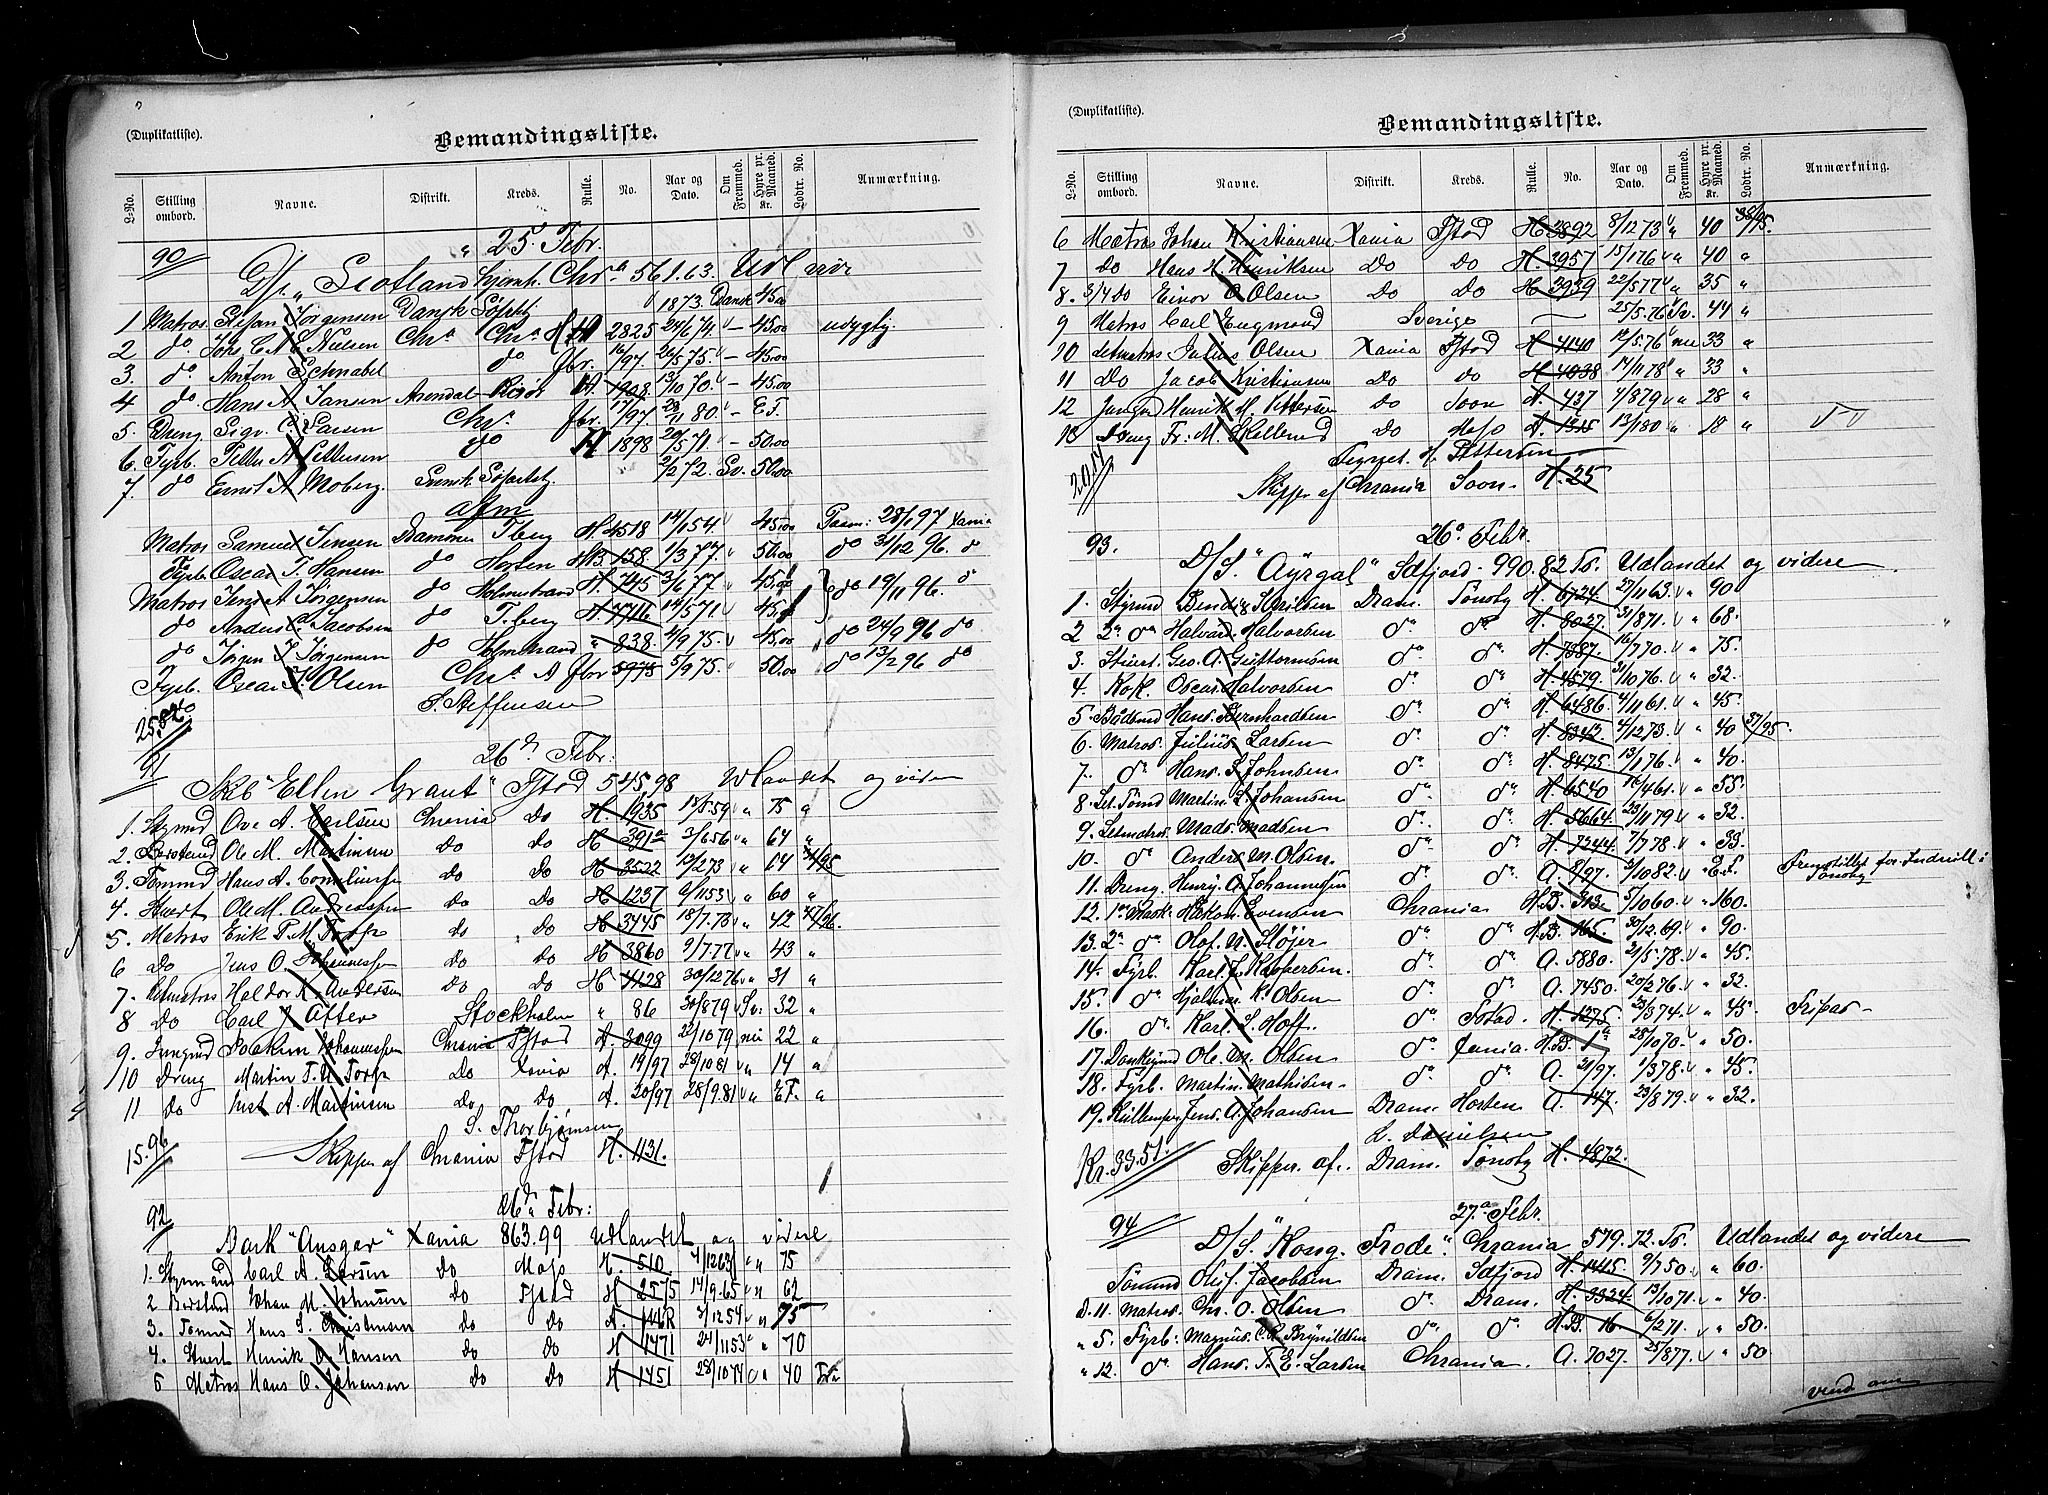 (Duplikatliste).
Bemandingsliste.
L-No. Stilling ombord. Navne. Distrikt. Kreds. Rulle. No. Aar og Dato. Om Fremmed. Hyre pr. Maaned. Kr. Lodtr. No. Anmærkning.
90 " 25 Febr.
D/s "Scotland hjemh. Chra 561.63. Udl
1 Matros Stefan Jörgensen Dansk 1873 Dansk 45.00
2 do Johs. C. Nielsen Chra Chra A 2825 24/6 74 " – 45.00 udygtig.
3. do Anton Schnabel do fbr. 16/97 26/5 75 " – 45.00
4 do Hans A. Jansen Arendal Risör A 1908 13/10 70 " – 45.00
5. Dreng Sigv. C. Larsen Chra fbr. 17/97 80 – E.F.
6. Fyrb. Peder A. Pettersen do A 1898 20/5 71 – 50.00
7. do Ernst A Moberg. Svensk 2/2 72. Sv. 50.00
Afm
Matros Samuel Jensen Drammen Tberg H. 4518 14/1 54 " 45.00 28/1 97 Xania
Fyrb. Oscar T. Hansen do Horten HB. 158. 1/3 77. 50.00 do 31/12 96. d
Matros Jens A Jörgensen do Holmstrand H. 745 3/6 77 " 45.00 do 19/11 96. d
do Anders C. Jacobsen do T.berg H. 7716 14/5 71 " 45.00
do Jörgen J Jörgensen do Holmstrand " 838. 4/9 75. " 45.00 do 24/9 96 do
Fyrb. Oscar J. Olsen Chra A fbr 5978 5/9 75. " 50.00 do 13/2 96 do
S. Steffensen
25.82
91 26d Febr.
Skib "Ellen Grant" Fstad 545.98 Udlandet og videre
1. Styrmd Ove A. Carlsen Chrania Do H. 1935 18/5 59 " " 75 "
2. Ole M. Martinsen Do Do H. 391 3/6 56 " " 64 "
3. Tömmd Hans A. Corneliussen do Do H 3522 12/2 73 " " 64
4. Stuert Ole M. Andreassen do Do H 1237 9/11 53 " " 60 "
5. Matros Erik T. M. Torp do Do H 3445 18/7.78 " " 42
6 Do Jens O. Johannessen Do Do H 3860 9/7.77 " " 43 "
7. Letmatros Haldor K. Andersen Do Do H 4128 30/12 76 " " 31 "
8 Do Carl J After Stockholm " 86 30/8 79 Sv: 32 "
9. Jungmd Joakim Johannessen Chrania Fstad A. 8099 22/10 79 nei 22 "
10 Dreng Martin T. Torp Do A. 19/97 28/10 81 " " 14 "
11 Do Just A. Martinsen Do Do A. 20/97 28/9.81 " " E F. "
S. Thorbjörnsen
15.96 Skipper af Chrania Fstad H. 1131.
92 26d Febr:
Bark "Ansgar" Xania 863.99 Udlandet og videre
1. Styrmand Carl A. Larsen Do Moss H. 510 4/12 63 " " 75
2 Johan M. Johnsen Do Fstad H 2575 14/9.65 " " 62
3. Tömmd Hans S. Christensen Do Do 3/12 54 " " 75
4. Stuert Henrik O. Hansen Do Do H 1471 24/11 53 " " 70
5 Matros Hans O. Johansen Do Do H 1451 28/10 74 " " 40
(Duplikatliste).
Bemandingsliste.
L-No. Stilling ombord. Navne. Distrikt. Kreds. Rulle. No. Aar og Dato. Om Fremmed. Hyre pr. Maaned. Kr. Lodtr. No. Anmærkning.
6 Matros Johan Kristiansen Xania Fstad H 3892 8/12 73 " " 40
7 do Hans H. Henriksen Do Do H. 3957 15/1 76 " " 40 "
8. 3/4 do Einar O. Olsen Do Do H 3939 22/5 77 " " 35 "
9 Matros Carl Engmond Sverige 25/5.76 Sv. 44 "
10 Letmatros Julius Olsen Xania Fstad H 4140 12/5.76 nei 33 "
11 Do Jacob Kristiansen Do do H 4038 17/11 78 " 33 "
12 Jungmd Henrik M. Pettersen Do Soon A. 437 1/8 79 " " 28 "
13 Dreng Fr. M. Skellerud Do Moss A. 1315 12/1 80 " 18 "
H. Pettersen
Skipper af Chrania Soon. H. 25
93. 26d Febr.
D/S. "Äyrgal" Sdfjord – 990.82 Ts. Udlandet og videre
1. Styrmd Dram. Tönsby H. 6724. 27/11 63. " " 90
2 2n do Halvard Halvorsen do do H. 8027. 31/8 71. " " 68.
3. Stuert. Geo. A. Guttormsen do do H. 7587. 16/7 70. " " 75.
4. Kok. Oscar Halvorsen do do H. 4579. 31/10 76. " " 32.
5. Bådsmd Hans Bernhardsen do do H. 6486. 4/11 61. " " 45.
6. Matros. Julius Larsen do do H. 8342. 4/12 73. " " 40 37/95
7. do Hans. J. Johnsen do do H. 8475. 13/1 76. " " 40.
8. Let. Tömd Martin L. Johansen do do H. 6540 16/4 61. " " 55.
9. Letmatros. Mads. Madsen do do H. 5664. 23/11 79. " " 32.
10. do Anders M. Olsen. do do H. 7244. 7/7 78. " " 33.
11. Dreng. Henry. A. Johannessen do do A. 8/97. 3/10 82. " " E.F. Fremstillet for Indrull i Tönsby
12. 1ste Mask. Håkon Evensen Chrania H.B. 313. 5/10 60. " " 160.
13. 2n do Olof. N. Stöjer do do H.B. 165. 30/12.69. " " 90.
14. Fyrb. Karl. J. Kaspersen. do do A. 5880. 21/5.78. " " 45.
15. do Hjalmar K. Olsen do do A. 7450. 20/2 76. " " 32.
16. do Karl L. Hoff. do Fstad. H. 1275 23/3 74. " " 45. Fripas –
17. Donkeymd Ole. M. Olsen. do H.B. 1a 28/10 70. " " 50.
18. Fyrb. Martin Mathisen do do A. 21/97. 1/3 78. " " 45.
19. Kullemper Jens. A. Johansen Dram. Horten A. 147. 23/8 79. " " 32.
L. Danielsen
Kr. 33.51. Skipper. af. Dram. Tönsby H. 4872.
94 27de Febr.
D/S. "Kong Frode". Chrania 579.72. Ts. Udlandet og videre
Tömmd Oluf. Jacobsen Dram. Sdfjord H. 1415 9/7 50. " " 60.
d. 11. Matros. Chr. O. Olsen do Dram. H. 3324. 13/10 71. " " 40.
" 5. Fyrb. Magnus. C. R. Brynildsen do do H.B. 16. 6/2 71. " " 50.
" 12. do Hans. T. E. Larsen Chrania. A. 7027. 25/8 77. " " 50
vend om